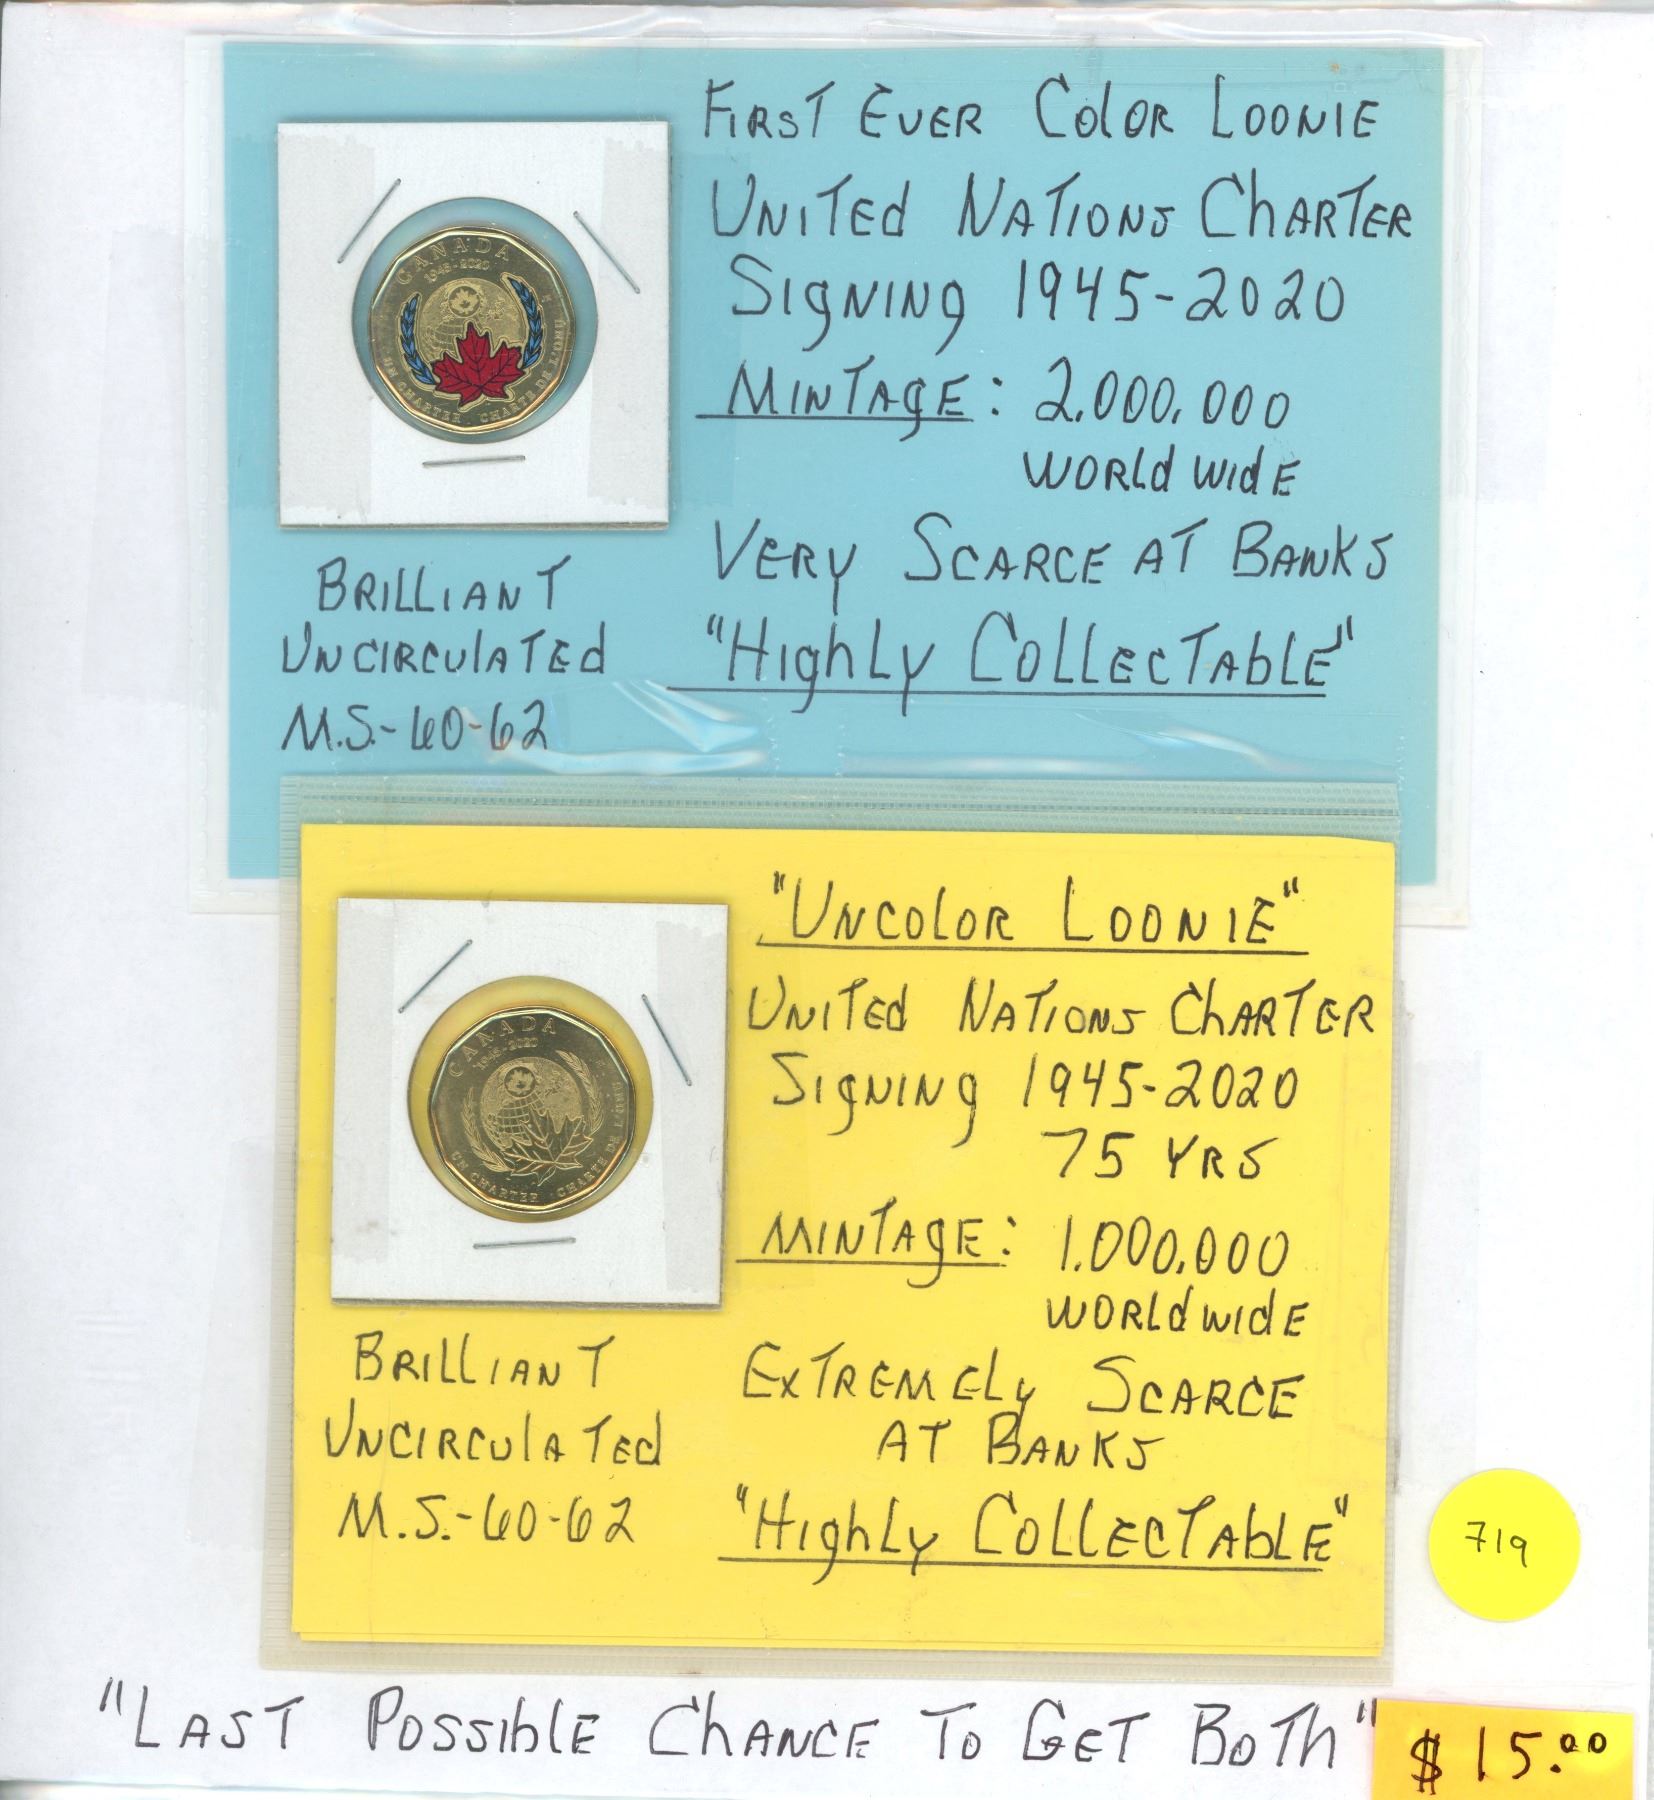 First Ever Color Loonie
United Nations Charter
Signing 1945-2020
Mintage: 2.000.000
World Wide
Very Scarce at Banks
"Highly Collectable"
CANADA
1945-2020
UN CHARTER · CHARTE DE L'ONU
Brilliant
Uncirculated
M.S.-60-62
"Uncolor Loonie"
United Nations Charter
Signing 1945-2020
75 Yrs
Mintage: 1.000.000
World Wide
Extremely Scarce
at Banks
"Highly Collectable"
CANADA
1945-2020
UN CHARTER · CHARTE DE L'ONU
Brilliant
Uncirculated
M.S.-60-62
719
"Last Possible Chance To Get Both"
$15.00